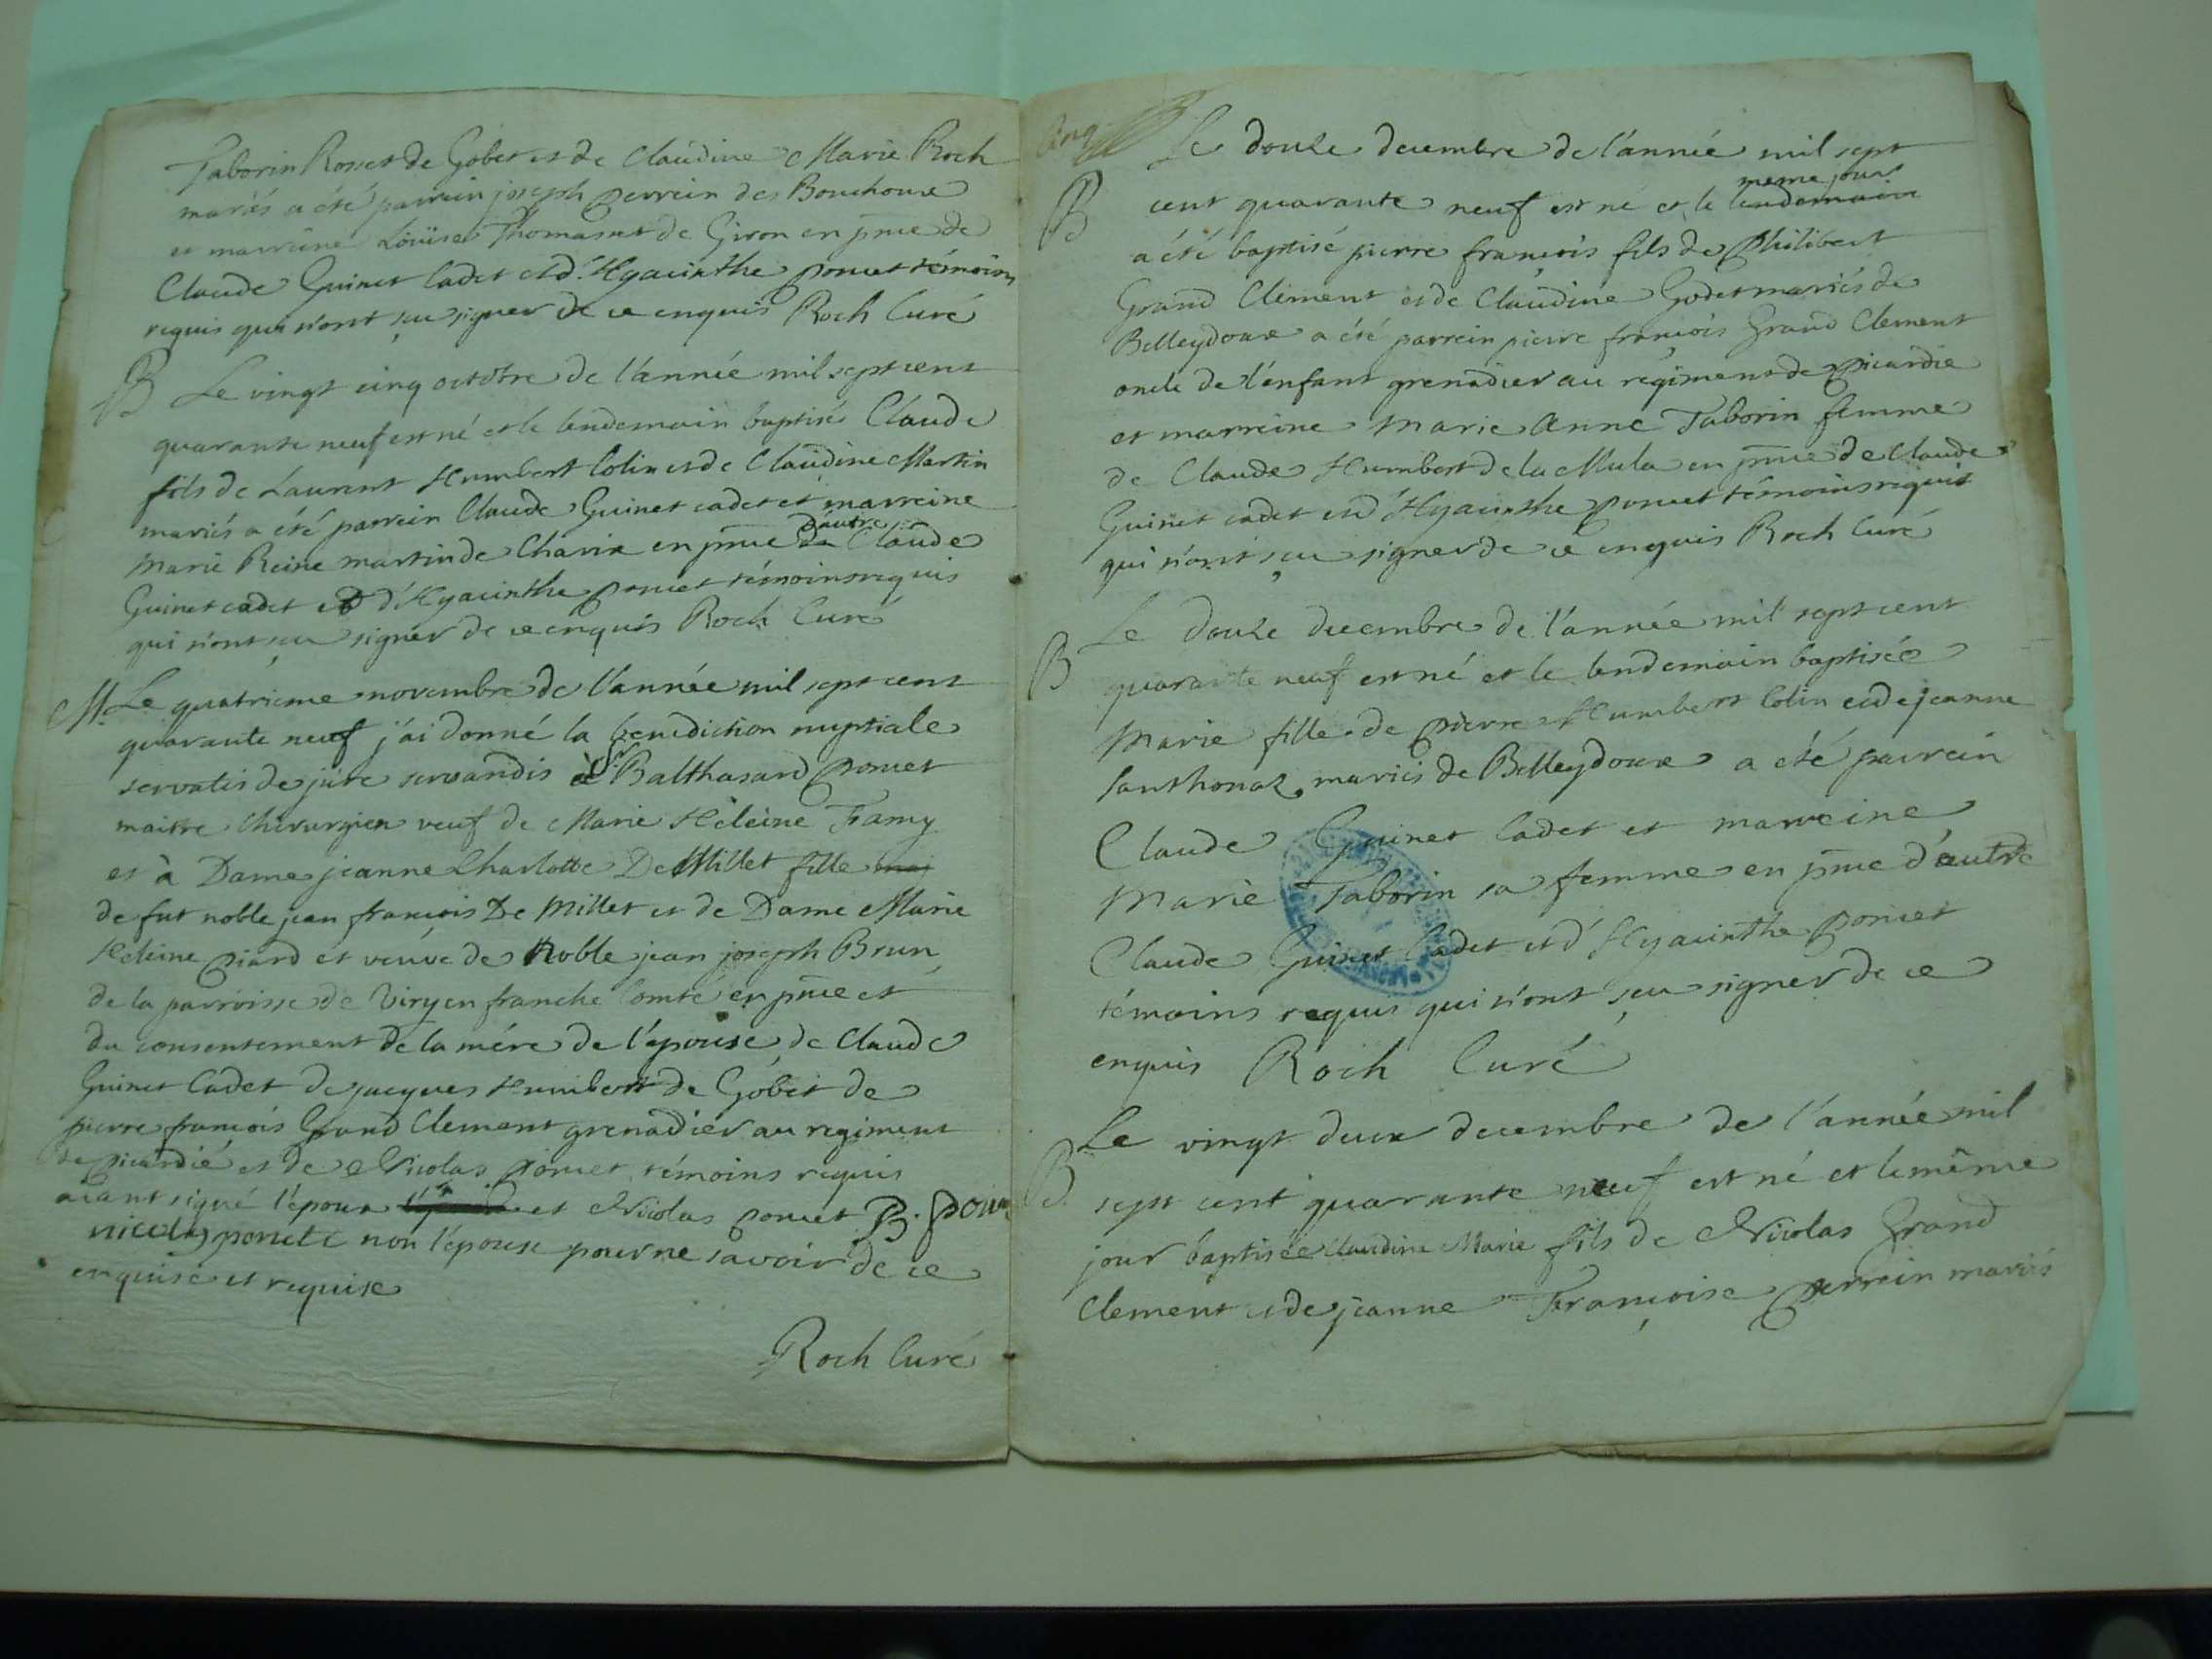 Taborin Rosset de Gobet et de Claudine Marie Roch
mariés a été parrein joseph perrein des Bouchoux
et marreine Loüise Thomasset de Giron en pnce de
Claude Guinet Cadet et d'Hyacinthe poncet témoins
requis qui n'ont sçu signer de ce enquis Roch Curé
B Le vingt cinq octobre de l'année mil sept cent
quarante neuf est né et le lendemain baptisé Claude
fils de Laurent Humbert Colin et de Claudine Martin
mariés a été parrein Claude Guinet cadet et marreine
dautre
Marie Reine martin de Charix en pnce de Claude
Guinet cadet et d'Hyacinthe poncet témoins requis
qui n'ont sçu signer de ce enquis Roch Curé
M. Le quatrieme novembre de l'année mil sept cent
quarante neuf j'ai donné la benediction nuptiale
servatis de jure servandis à Sr Balthasard poncet
maitre chirurgien veuf de Marie Héleine Famy
et à Dame jeanne Charlotte De Millet fille maj
de fut noble jean françois De Millet et de Dame Marie
Héleine piard et veuve de Noble jean joseph Brun
de la parroisse de Viry en franche Comté en pnce et
du consentement de la mére de l'épouse, de Claude
Guinet Cadet de jacques Humbert de Gobet de
pierre françois Grand Clement grenadier au regiment
de picardie et de Nicolas poncet témoins requis
aiant signé l'époux et Nicolas poncet B. pon
nicolas poncet non l'epouse pour ne savoir de ce
enquise et requise
Roch Curé
Le douze decembre de l'année mil sept
meme jour
B cent quarante neuf est né et le lendemain
a été baptisé pierre françois fils de Philibert
Grand Clément et de Claudine Godet mariés de
Belleydoux a été parrein pierre françois Grand Clement
oncle de l'enfant grenadier au regiment de picardie
et marreine Marie Anne Taborin femme
de Claude Humbert de la Mula en pnce de Claude
Guinet cadet et d'Hyacinthe poncet témoins requis
qui n'ont sçu signer de ce enquis Roch Curé
Le douze decembre de l'année mil sept cent
B quarante neuf est né et le lendemain baptisée
Marie fille de pierre Humbert Colin et de jeanne
Santhonaz mariés de Belleydoux a été parrein
Claude Guinet Cadet et marreine
Marie Taborin sa femme en pnce d'autre
Claude Guinet Cadet et d'Hyacinthe poncet
témoins requis qui n'ont sçu signer de ce
enquis Roch Curé
Le vingt deux decembre de l'année mil
B sept cent quarante neuf est né et le même
jour baptisée Claudine Marie fils de Nicolas Grand
Clement et de jeanne Françoise perrein mariés